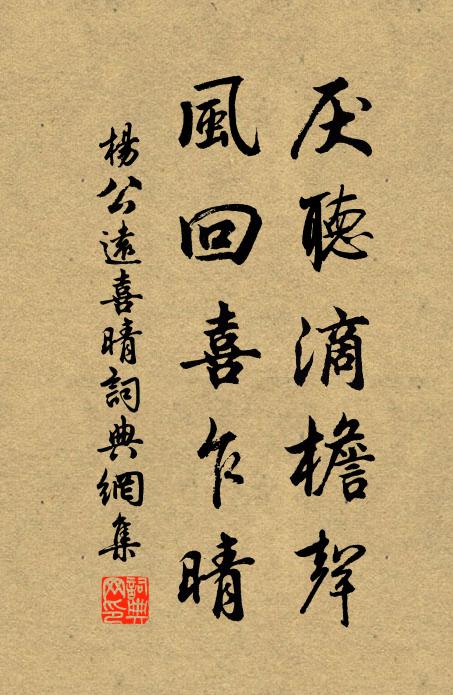 厌聽滴檐聲
風回喜乍晴
楊公遠喜晴詞典網集
詞典网印